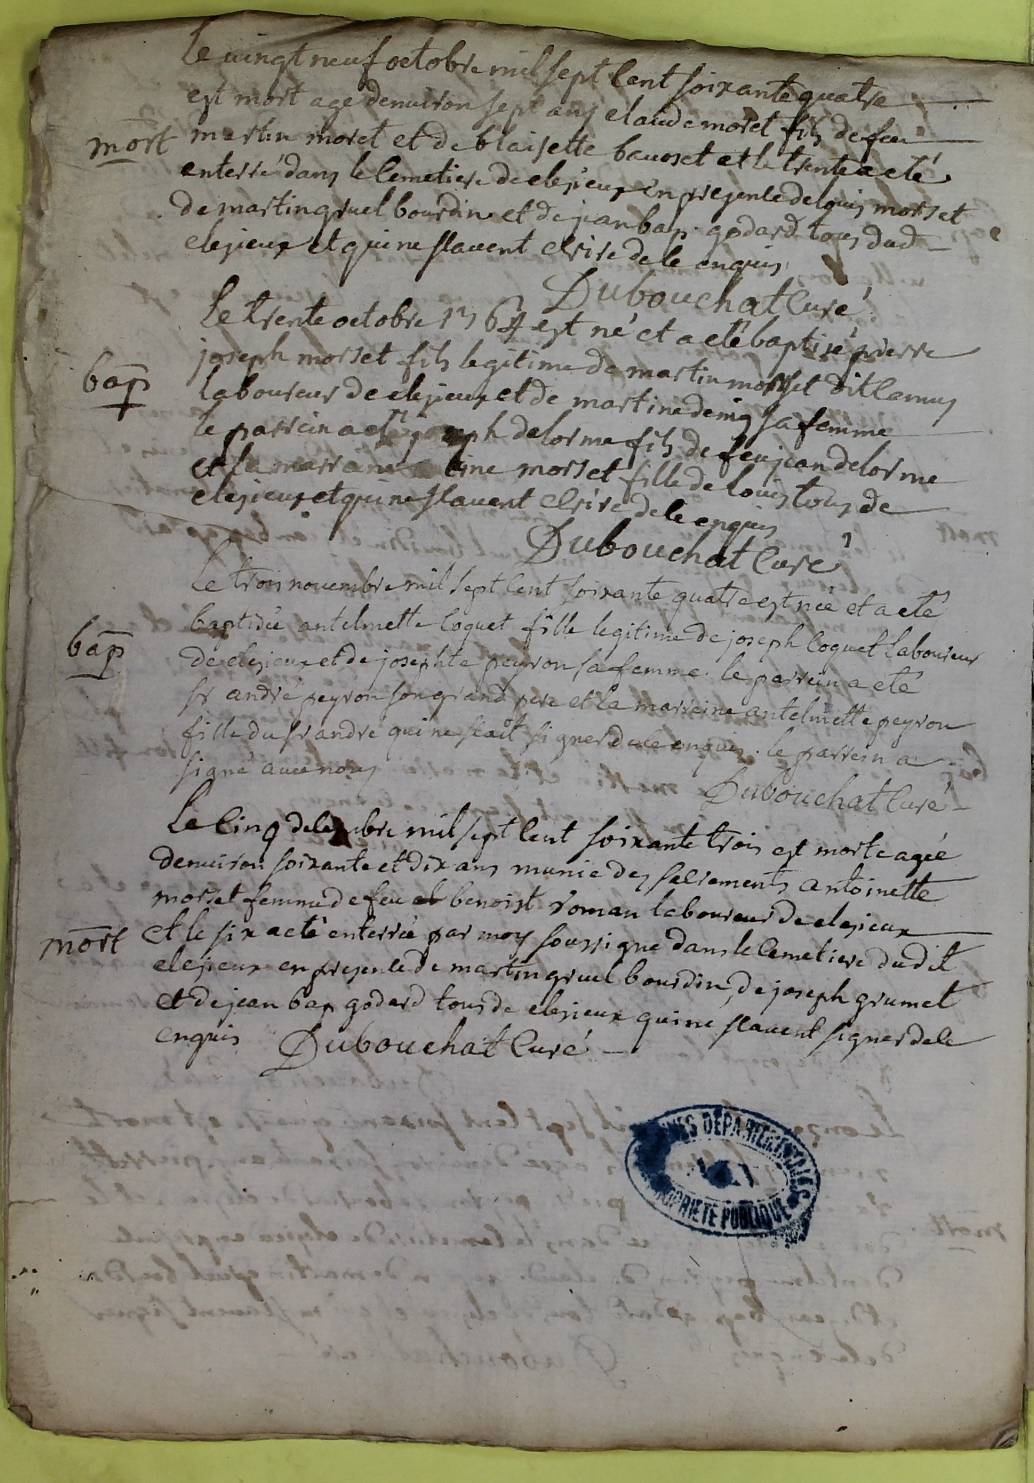 le vingt neuf octobre mil sept cent soixante quatre
est mort age denviron sept ans claude moret fils de feu
mort
martin moret et de blaisette bavoset et le trente a eté
enterré dans le cemetiere de clezieux en presence de louis morset
de martin gruel bourdin et de jean bap godard tous dud
clezieux et qui ne scavent ecrire de ce enquis
Dubouchat curé
Le trente octobre 1764 est né et a eté baptisé pierre
joseph morset fils legitime de martin morset dit camus
bap
laboureur de clezieux et de martine demig sa femme
le parrein a eté joseph delorme fils de feu jean delorme
et la marraine morset fille de louis tous de
clezieux et qui ne scavent ecrire de ce enquis
Dubouchat curé
Le trois novembre mil sept cent soixante quatre est née et a eté
baptisée antelmette coquet fille legitime de joseph coquet laboureur
bap
de clezieux et de josephte peyron sa femme. le parrein a eté
sr andré peyron son grand pere et la marreine antelmette peyron
fille du sr andré qui ne scait signer de ce enquis. le parrein a
signé avec nous
Dubouchat curé
Le cinq decembre mil sept cent soixante trois est morte agée
denviron soixante et dix ans munie des sacrements antoinette
morset femme de feu benoist roman laboureur de clezieux
mort
et le six a eté enterrée par moy soussigné dans le cemetiere dudit
clezieux en presence de martin gruel bourdin, de joseph grumet
et de jean bap godard tous de clezieux qui ne scavent signer de ce
enquis Dubouchat curé
DEPARTEMENTALES
PROPRIETE PUBLIQUE